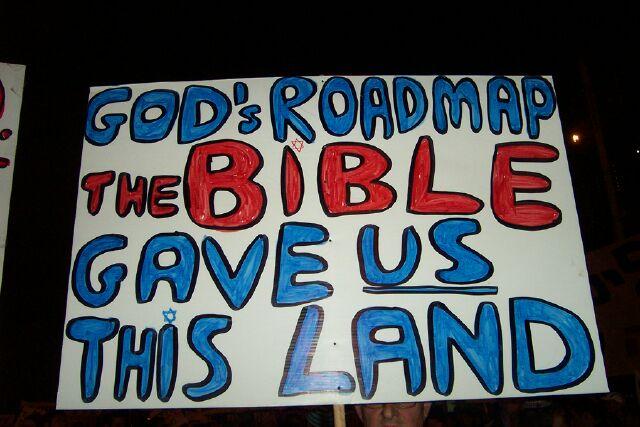 GOD's ROADMAP
THE BIBLE
GAVE US
THIS LAND